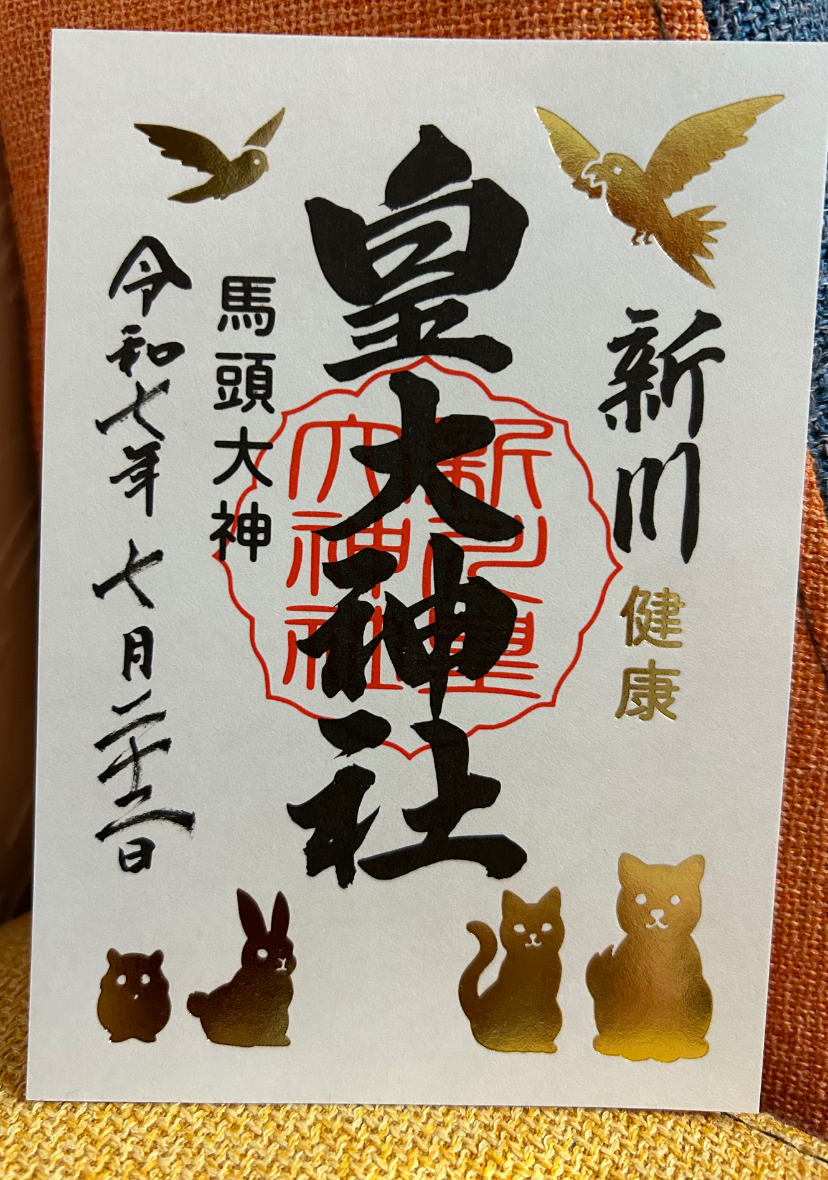 新川
健康
皇大神社
新川皇
大神社
馬頭大神
令和七年 七月二十二日